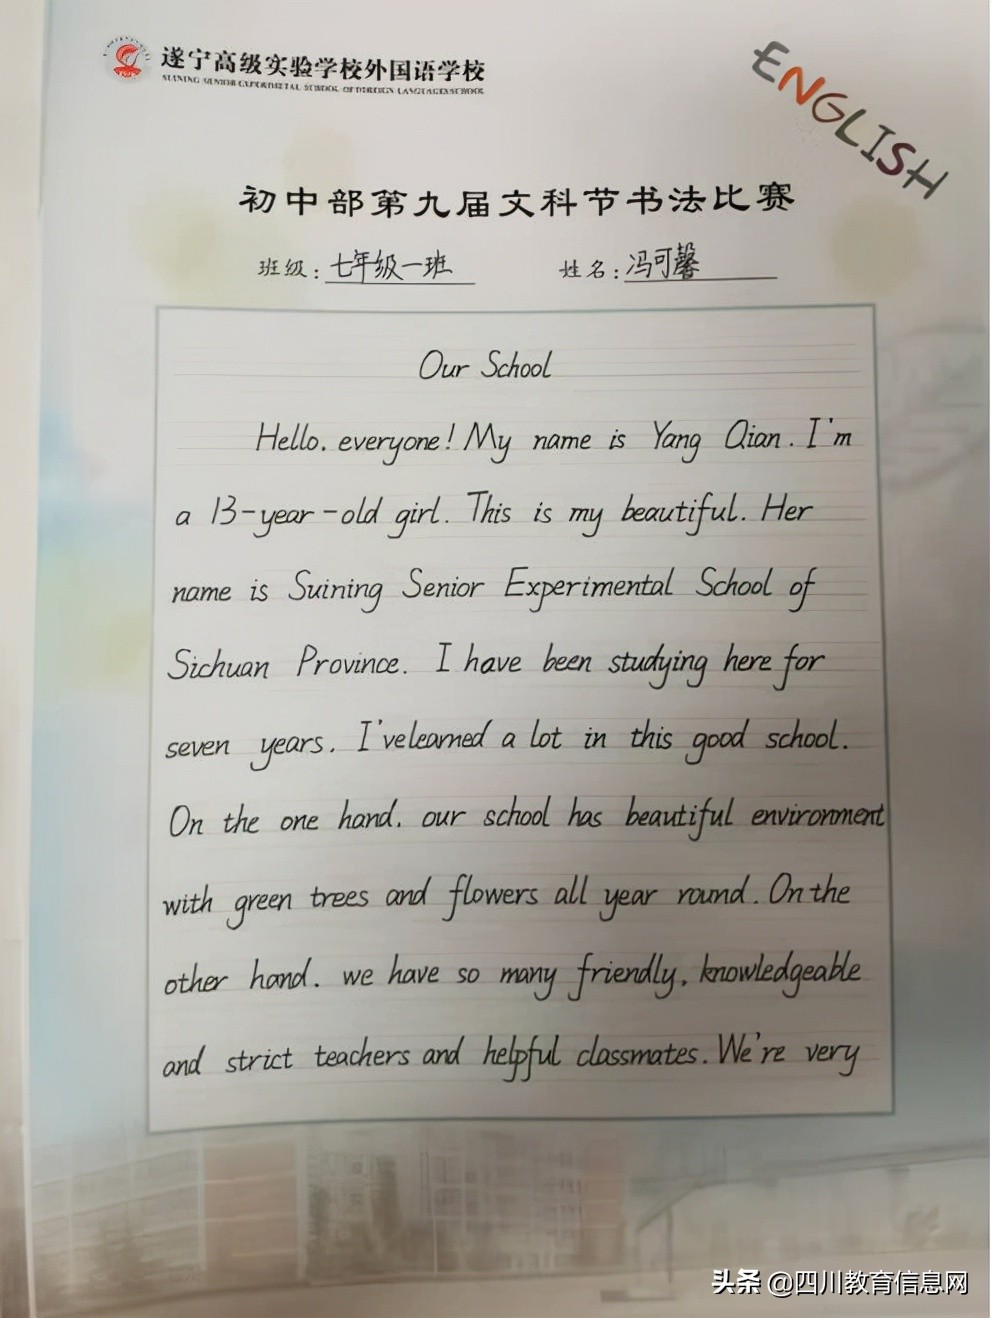 遂宁高级实验学校外国语学校
SUINING SENIOR EXPERIMETAL SCHOOL OF FOREIGN LANGUAGES SCHOOL
ENGLISH
初中部第九届文科节书法比赛
班级：七年级一班 姓名：冯可馨
Our School
Hello. everyone! My name is Yang Qian. I'm
a 13-year-old girl. This is my beautiful. Her
name is Suining Senior Experimental School of
Sichuan Province. I have been studying here for
seven years. I've learned a lot in this good school.
On the one hand. our school has beautiful environment
with green trees and flowers all year round. On the
other hand. we have so many friendly, knowledgeable
and strict teachers and helpful classmates. We're very
头条 @四川教育信息网